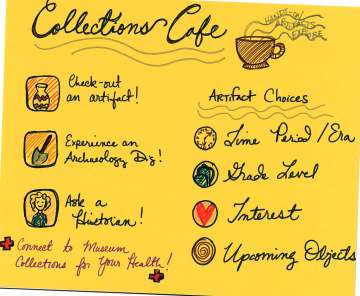 Collections Cafe
HANDS-ON
ARTIFACTS
EXPLORE
Check-out
an artifact!
Artifact Choices
Experience an
Archaeology Dig!
Time Period/Era
Grade Level
Ask a
Historian!
Interest
Connect to Museum
Collections for Your Health!
Upcoming Objects